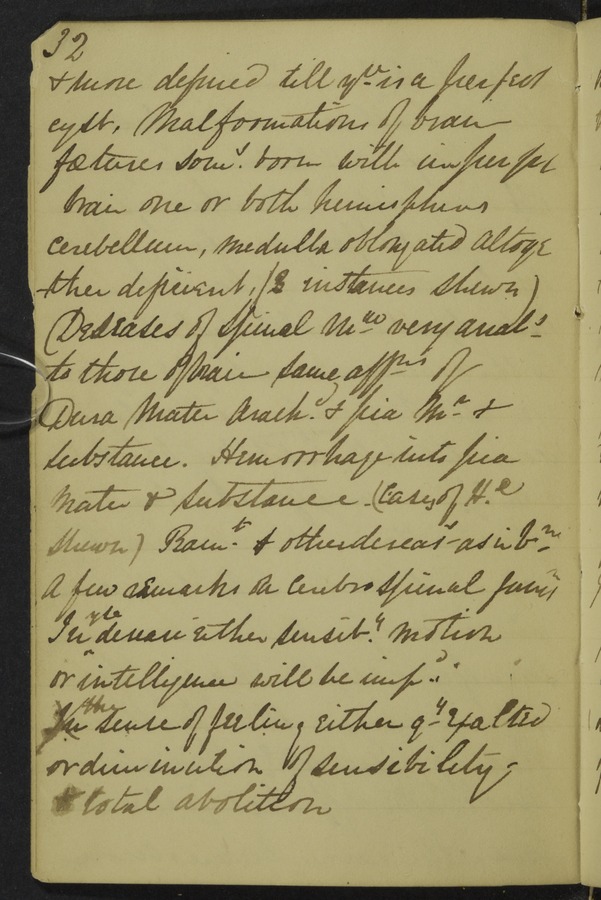 32
& more defined till yre is a perfect
cyst. Malformations of brain
fœtuses somes. born with imperfect
brain one or both hemispheres
cerebellum, medulla oblongated altoge
ther deficient, (2 instances shewn)
(Diseases of Spinal Mow very anals
to those of brain same affns of
Dura Mater Arach.d & pia Mr &
substance. Hemorrhage into pia
Mater & substance. (Cases of H.e
shewn) Ram.t & other diseas- as in bn
A few remarks on Cerebro spinal
In disease either sensib.y motion
or intelligence will be impd.
In the sense of feeling either gy exalted
or diminution of sensibility -
total abolition